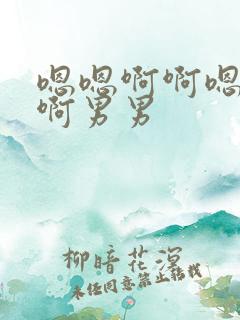 嗯嗯啊啊嗯
啊男男
柳暗花溟
未经同意禁止转载